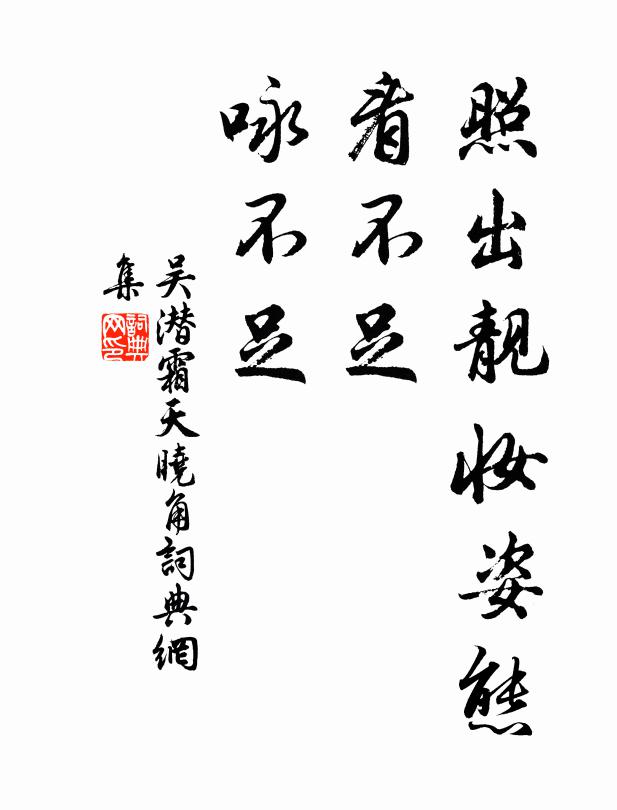 照出靚妝姿態
看不足
咏不足
吴潜霜天曉角詞典網
集
詞典網印